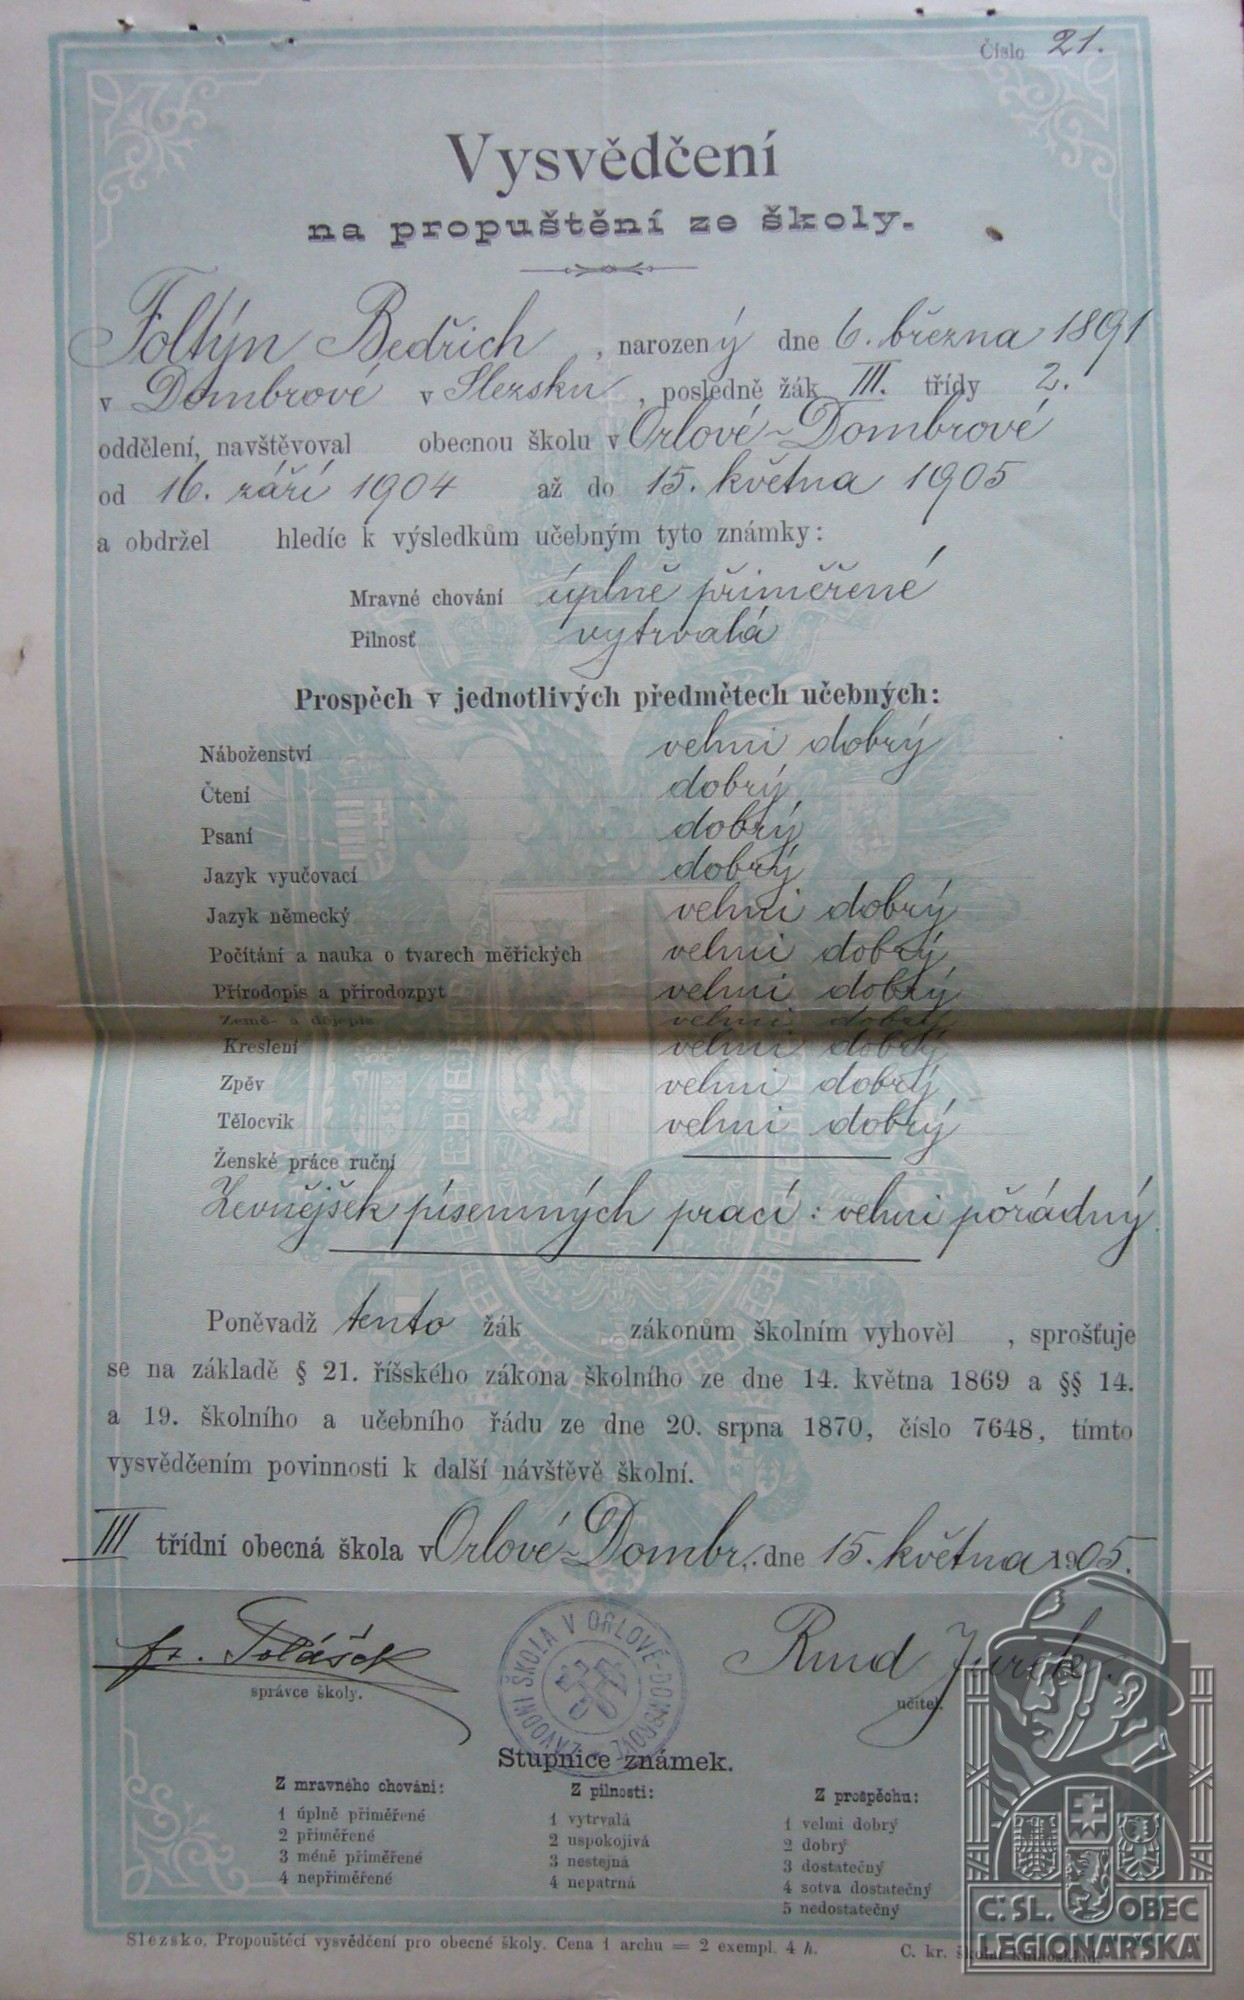 Číslo 21.
Vysvědčení
na propuštění ze školy.
Foltýn Bedřich, narozený dne 6. března 1891
v Dombrové v Slezsku, posledně žák III. třídy 2.
oddělení, navštěvoval obecnou školu v Orlové-Dombrové
od 16. září 1904 až do 15. května 1905
a obdržel hledíc k výsledkům učebným tyto známky:
Mravné chování úplně přiměřené
Pilnosť vytrvalá
Prospěch v jednotlivých předmětech učebných:
Náboženství velmi dobrý
Čtení dobrý
Psaní dobrý
Jazyk vyučovací dobrý
Jazyk německý velmi dobrý
Počítání a nauka o tvarech měřických velmi dobrý
Přírodopis a přírodozpyt velmi dobrý
Země- a dějepis velmi dobrý
Kreslení velmi dobrý
Zpěv velmi dobrý
Tělocvik velmi dobrý
Ženské práce ruční
Zevnějšek písemných prací: velmi pořádný.
Poněvadž tento žák zákonům školním vyhověl, sprošťuje
se na základě § 21. říšského zákona školního ze dne 14. května 1869 a §§ 14.
a 19. školního a učebního řádu ze dne 20. srpna 1870, číslo 7648, tímto
vysvědčením povinnosti k další návštěvě školní.
III třídní obecná škola v Orlové-Dombr. dne 15. května 1905.
Fr. Polášek
správce školy.
ZÁVODNÍ ŠKOLA V ORLOVÉ-DOMBROVÉ
Rud Jurek.
učitel.
Stupnice známek.
Z mravného chování: Z pilnosti: Z prospěchu:
1 úplně přiměřené 1 vytrvalá 1 velmi dobrý
2 přiměřené 2 uspokojivá 2 dobrý
3 méně přiměřené 3 nestejná 3 dostatečný
4 nepřiměřené 4 nepatrná 4 sotva dostatečný
5 nedostatečný
Slezsko. Propouštěcí vysvědčení pro obecné školy. Cena 1 archu = 2 exempl. 4 h. C. kr. školní knihosklad.
Č. SL. OBEC
LEGIONÁŘSKÁ